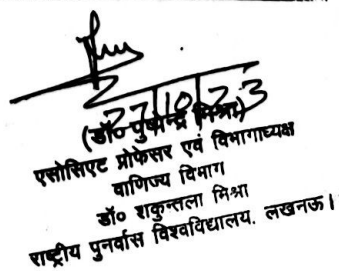 27/10/23
(डॉ० पुष्पेन्द्र मिश्रा)
एसोसिएट प्रोफेसर एवं विभागाध्यक्ष
वाणिज्य विभाग
डॉ० शकुन्तला मिश्रा
राष्ट्रीय पुनर्वास विश्वविद्यालय, लखनऊ।